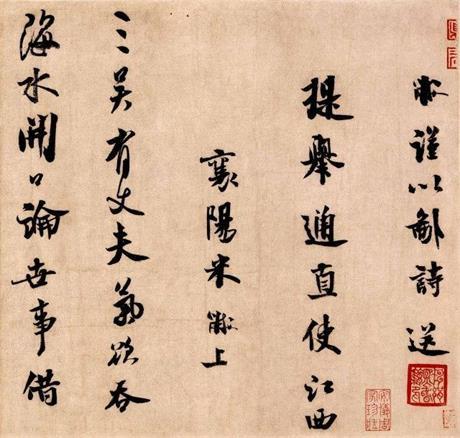 黻谨以鄙詩送
提舉通直使江西
襄陽米黻上
三吴有丈夫氣欲吞
海水開口論世事借